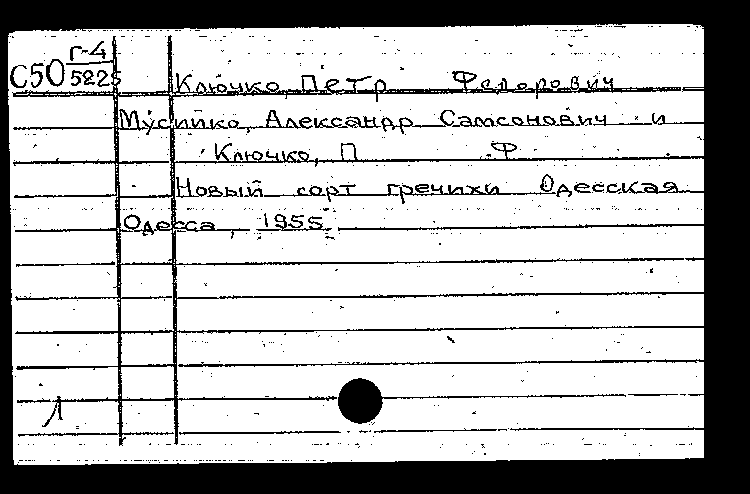 Г-4
С50 5225
Ключко, Петр Федорович
Мусийко, Александр Самсонович и
Ключко, П Ф
Новый сорт гречихи Одесская
Одесса, 1955.
1